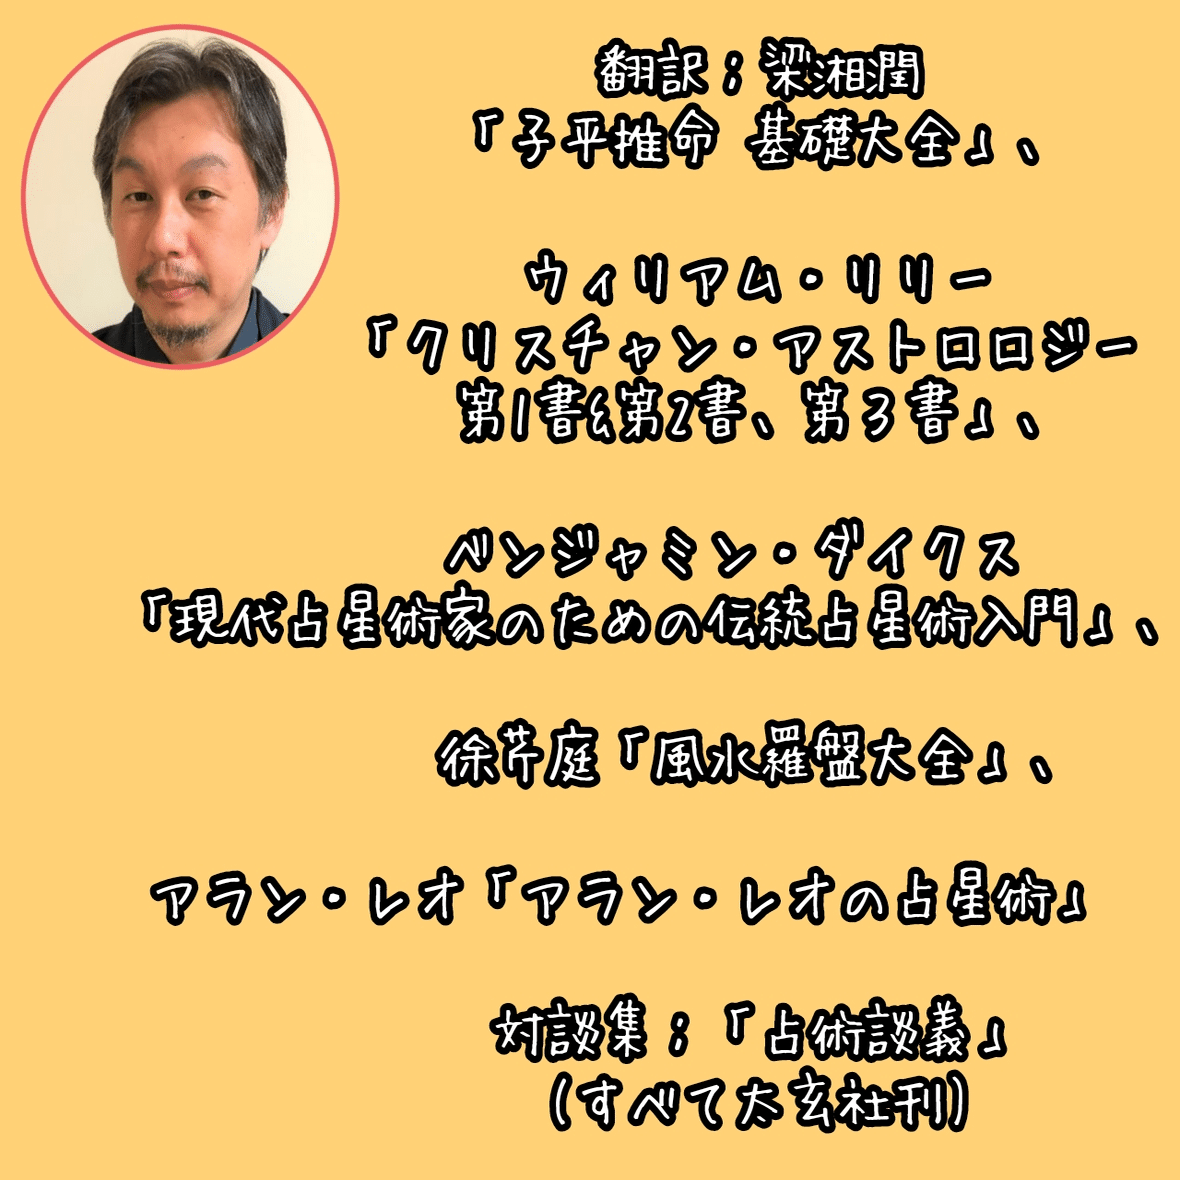 翻訳：梁湘潤
「子平推命 基礎大全」、
ウィリアム・リリー
「クリスチャン・アストロロジー
第1書&第2書、第３書」、
ベンジャミン・ダイクス
「現代占星術家のための伝統占星術入門」、
徐芹庭「風水羅盤大全」、
アラン・レオ「アラン・レオの占星術」
対談集：「占術談義」
(すべて太玄社刊)